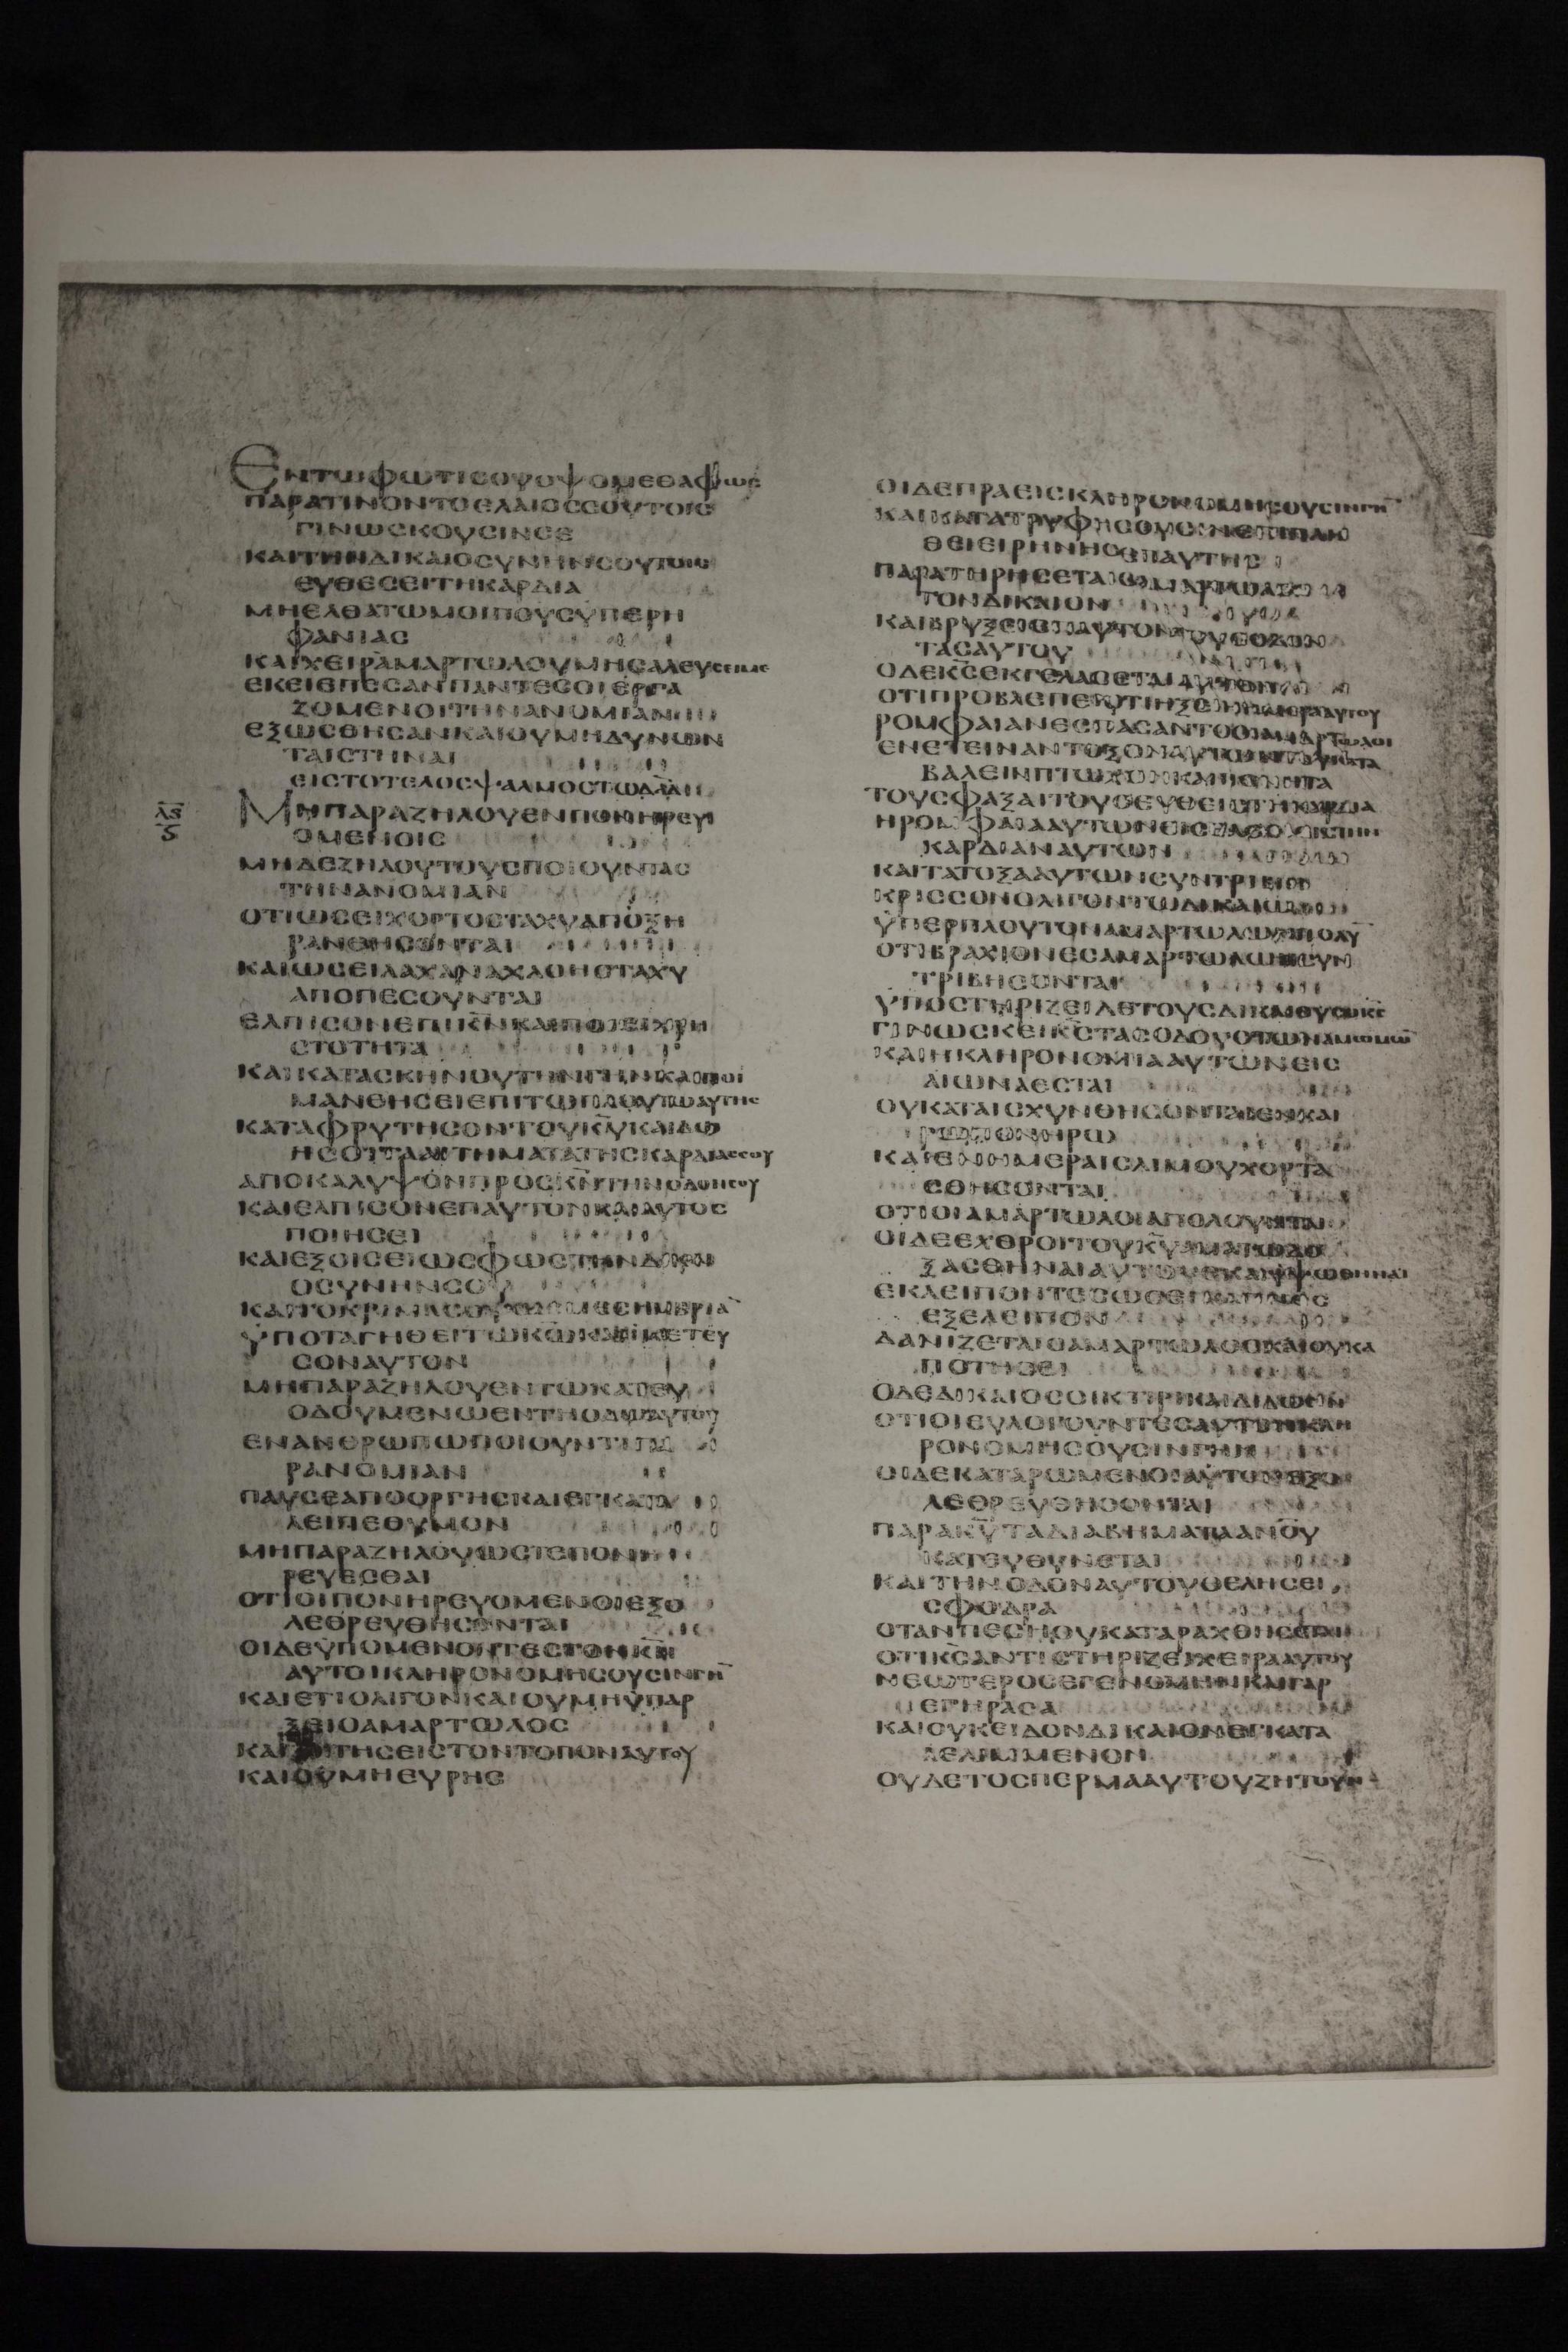 ΕΝΤΩΦΩΤΙСΟΥΟΨΟΜΕΘΑΦΩС
ΠΑΡΑΤΙΝΟΝΤΟΕΛΑΙΟССΟΥΤΟΙС
ΓΙΝΩСΚΟΥСΙΝСΕ
ΚΑΙΤΗΝΔΙΚΑΙΟСΥΝΗΝСΟΥΤΟΙС
ΕΥΘΕСΕΙΤΗΚΑΡΔΙΑ
ΜΗΕΛΘΑΤΩΜΟΙΠΟΥСΥΠΕΡΗ
ΦΑΝΙΑС
ΚΑΙΧΕΙΡΑΜΑΡΤΩΛΟΥΜΗСΑΛΕΥСΕΙΜΕ
ΕΚΕΙΕΠΕСΑΝΠΑΝΤΕСΟΙΕΡΓΑ
ΖΟΜΕΝΟΙΤΗΝΑΝΟΜΙΑΝ
ΕΞΩСΘΗСΑΝΚΑΙΟΥΜΗΔΥΝΩΝ
ΤΑΙСΤΗΝΑΙ
ΕΙСΤΟΤΕΛΟСΨΑΛΜΟСΤΩΔΑΔ
ΛϚ
ΜΗΠΑΡΑΖΗΛΟΥΕΝΠΟΝΗΡΕΥ
ΟΜΕΝΟΙС
ΜΗΔΕΖΗΛΟΥΤΟΥСΠΟΙΟΥΝΤΑС
ΤΗΝΑΝΟΜΙΑΝ
ΟΤΙΩСΕΙΧΟΡΤΟСΤΑΧΥΑΠΟΞΗ
ΡΑΝΘΗСΟΝΤΑΙ
ΚΑΙΩСΕΙΛΑΧΑΝΑΧΛΟΗСΤΑΧΥ
ΑΠΟΠΕСΟΥΝΤΑΙ
ΕΛΠΙСΟΝΕΠΙΚΝΚΑΙΠΟΙΕΙΧΡΗ
СΤΟΤΗΤΑ
ΚΑΙΚΑΤΑСΚΗΝΟΥΤΗΝΓΗΝΚΑΙΠΟΙ
ΜΑΝΘΗСΕΙΕΠΙΤΩΠΛΟΥΤΩΑΥΤΗС
ΚΑΤΑΦΡΥΤΗСΟΝΤΟΥΚΥΚΑΙΔΩ
ΗСΟΙΤΑΑΙΤΗΜΑΤΑΤΗСΚΑΡΔΙΑССΟΥ
ΑΠΟΚΑΛΥΨΟΝΠΡΟСΚΝΤΗΝΟΔΟΝСΟΥ
ΚΑΙΕΛΠΙСΟΝΕΠΑΥΤΟΝΚΑΙΑΥΤΟС
ΠΟΙΗСΕΙ
ΚΑΙΕΞΟΙСΕΙΩСΦΩСΤΗΝΔΙΚΑΙ
ΟСΥΝΗΝСΟΥ
ΚΑΙΤΟΚΡΙΜΑСΟΥΩСΜΕСΗΜΒΡΙΑ
ΥΠΟΤΑΓΗΘΕΙΤΩΚΩΚΑΙΙΚΕΤΕΥ
СΟΝΑΥΤΟΝ
ΜΗΠΑΡΑΖΗΛΟΥΕΝΤΩΚΑΤΕΥ
ΟΔΟΥΜΕΝΩΕΝΤΗΟΔΩΑΥΤΟΥ
ΕΝΑΝΘΡΩΠΩΠΟΙΟΥΝΤΙΠΑ
ΡΑΝΟΜΙΑΝ
ΠΑΥСΕΑΠΟΟΡΓΗСΚΑΙΕΓΚΑΤΑ
ΛΕΙΠΕΘΥΜΟΝ
ΜΗΠΑΡΑΖΗΛΟΥΩСΤΕΠΟΝΗ
ΡΕΥΕСΘΑΙ
ΟΤΙΟΙΠΟΝΗΡΕΥΟΜΕΝΟΙΕΞΟ
ΛΕΘΡΕΥΘΗСΟΝΤΑΙ
ΟΙΔΕΥΠΟΜΕΝΟΝΤΕСΤΟΝΚΝ
ΑΥΤΟΙΚΛΗΡΟΝΟΜΗСΟΥСΙΝΓΗ
ΚΑΙΕΤΙΟΛΙΓΟΝΚΑΙΟΥΜΗΥΠΑΡ
ΞΕΙΟΑΜΑΡΤΩΛΟС
ΚΑΙΖΗΤΗСΕΙСΤΟΝΤΟΠΟΝΑΥΤΟΥ
ΚΑΙΟΥΜΗΕΥΡΗС
ΟΙΔΕΠΡΑΕΙСΚΛΗΡΟΝΟΜΗСΟΥСΙΝΓΗ
ΚΑΙΚΑΤΑΤΡΥΦΗСΟΥСΙΝΕΠΙΠΛΗ
ΘΕΙΕΙΡΗΝΗСΕΠΑΥΤΗС
ΠΑΡΑΤΗΡΗСΕΤΑΙΟΑΜΑΡΤΩΛΟС
ΤΟΝΔΙΚΑΙΟΝ
ΚΑΙΒΡΥΞΕΙΕΠΑΥΤΟΝΤΟΥСΟΔΟΝ
ΤΑСΑΥΤΟΥ
ΟΔΕΚСΕΚΓΕΛΑСΕΤΑΙΑΥΤΟΝ
ΟΤΙΠΡΟΒΛΕΠΕΙΟΤΙΗΞΕΙΗΗΜΕΡΑΑΥΤΟΥ
ΡΟΜΦΑΙΑΝΕСΠΑСΑΝΤΟΟΙΑΜΑΡΤΩΛΟΙ
ΕΝΕΤΕΙΝΑΝΤΟΞΟΝΑΥΤΩΝΤΟΥΚΑΤΑ
ΒΑΛΕΙΝΠΤΩΧΟΝΚΑΙΠΕΝΗΤΑ
ΤΟΥСΦΑΞΑΙΤΟΥСΕΥΘΕΙСΤΗΚΑΡΔΙΑ
ΗΡΟΜΦΑΙΑΑΥΤΩΝΕΙСΕΛΘΟΙΕΙСΤΗΝ
ΚΑΡΔΙΑΝΑΥΤΩΝ
ΚΑΙΤΑΤΟΞΑΑΥΤΩΝСΥΝΤΡΙΒΕΙΗ
ΚΡΙССΟΝΟΛΙΓΟΝΤΩΔΙΚΑΙΩ
ΥΠΕΡΠΛΟΥΤΟΝΑΜΑΡΤΩΛΩΝΠΟΛΥ
ΟΤΙΒΡΑΧΙΟΝΕСΑΜΑΡΤΩΛΩΝСΥΝ
ΤΡΙΒΗСΟΝΤΑΙ
ΥΠΟСΤΗΡΙΖΕΙΔΕΤΟΥСΔΙΚΑΙΟΥСΟΚС
ΓΙΝΩСΚΕΙΚСΤΑСΟΔΟΥСΤΩΝΑΜΩΜΩ
ΚΑΙΗΚΛΗΡΟΝΟΜΙΑΑΥΤΩΝΕΙС
ΑΙΩΝΑΕСΤΑΙ
ΟΥΚΑΤΑΙСΧΥΝΘΗСΟΝΤΑΙΕΝΚΑΙ
ΡΩΠΟΝΗΡΩ
ΚΑΙΕΝΗΜΕΡΑΙСΛΙΜΟΥΧΟΡΤΑ
СΘΗСΟΝΤΑΙ
ΟΤΙΟΙΑΜΑΡΤΩΛΟΙΑΠΟΛΟΥΝΤΑΙ
ΟΙΔΕΕΧΘΡΟΙΤΟΥΚΥΑΜΑΤΩΔΟ
ΞΑСΘΗΝΑΙΑΥΤΟΥСΚΑΙΥΨΩΘΗΝΑΙ
ΕΚΛΕΙΠΟΝΤΕСΩСΕΙΚΑΠΝΟС
ΕΞΕΛΕΙΠΟΝ
ΔΑΝΙΖΕΤΑΙΟΑΜΑΡΤΩΛΟСΚΑΙΟΥΚΑ
ΠΟΤΗСΕΙ
ΟΔΕΔΙΚΑΙΟСΟΙΚΤΙΡΙΚΑΙΔΙΔΩСΙΝ
ΟΤΙΟΙΕΥΛΟΓΟΥΝΤΕСΑΥΤΟΝΚΛΗ
ΡΟΝΟΜΗСΟΥСΙΝΓΗΝ
ΟΙΔΕΚΑΤΑΡΩΜΕΝΟΙΑΥΤΟΝΕΞΟ
ΛΕΘΡΕΥΘΗСΟΝΤΑΙ
ΠΑΡΑΚΥΤΑΔΙΑΒΗΜΑΤΑΑΝΟΥ
ΚΑΤΕΥΘΥΝΕΤΑΙ
ΚΑΙΤΗΝΟΔΟΝΑΥΤΟΥΘΕΛΗСΕΙ
СΦΟΔΡΑ
ΟΤΑΝΠΕСΗΟΥΚΑΤΑΡΑΧΘΗСΕΤΑΙ
ΟΤΙΚСΑΝΤΙСΤΗΡΙΖΕΙΧΕΙΡΑΑΥΤΟΥ
ΝΕΩΤΕΡΟСΕΓΕΝΟΜΗΝΚΑΙΓΑΡ
ΕΓΗΡΑСΑ
ΚΑΙΟΥΚΕΙΔΟΝΔΙΚΑΙΟΝΕΓΚΑΤΑ
ΛΕΛΙΜΜΕΝΟΝ
ΟΥΔΕΤΟСΠΕΡΜΑΑΥΤΟΥΖΗΤΟΥΝ